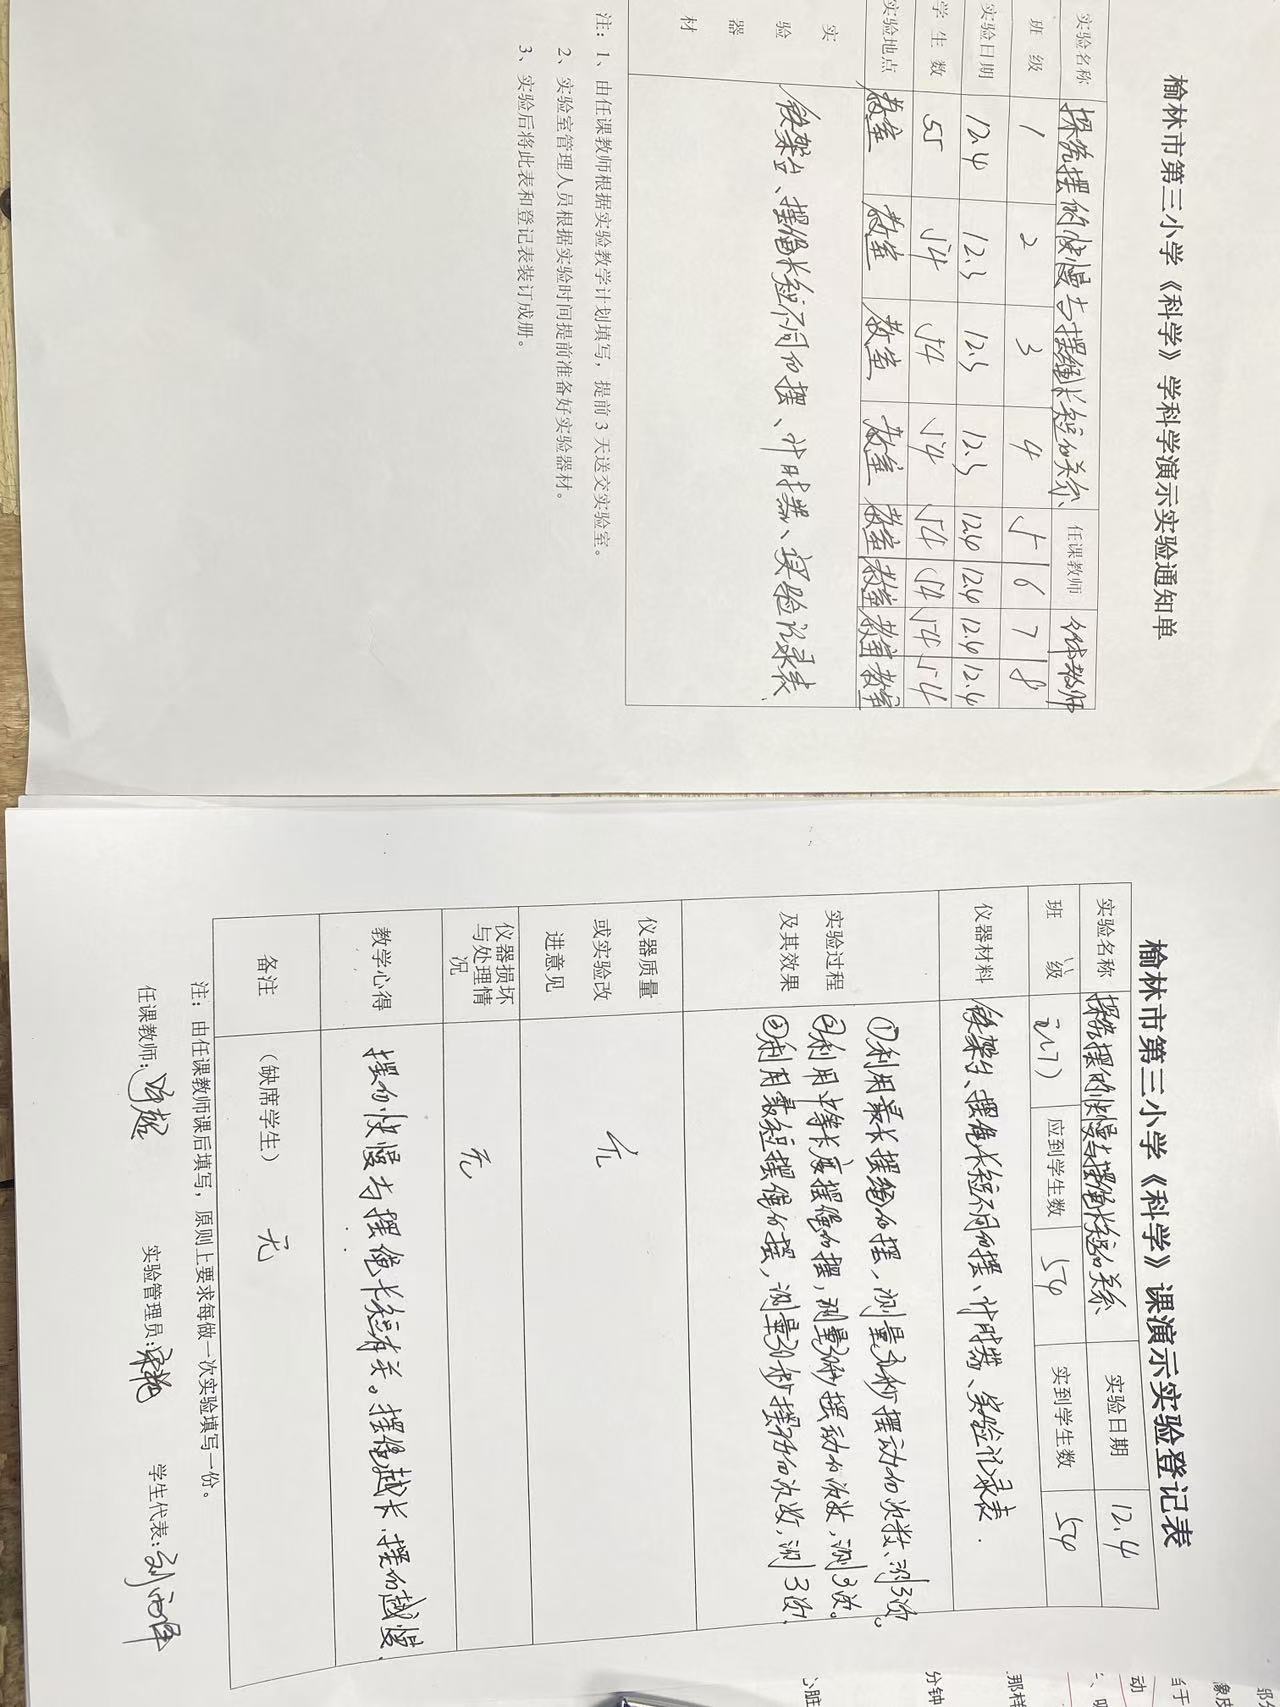 榆林市第三小学《科学》学科学演示实验通知单
实验名称 探究摆的快慢与摆绳长短的关系 任课教师 全体教师
班 级 1 2 3 4 5 6 7 8
实验日期 12.4 12.3 12.3 12.3 12.4 12.4 12.4 12.4
学 生 数 55 54 54 54 54 54 54 54
实验地点 教室 教室 教室 教室 教室 教室 教室 教室
实验器材 铁架台、摆绳长短不同的摆、计时器、实验记录表
注：1、由任课教师根据实验教学计划填写，提前 3 天送交实验室。
2、实验室管理人员根据实验时间提前准备好实验器材。
3、实验后将此表和登记表装订成册。
榆林市第三小学《科学》课演示实验登记表
实验名称 探究摆的快慢与摆绳长短的关系 实验日期 12.4
班 级 应到学生数 54 实到学生数 54
仪器材料 铁架台、摆绳长短不同的摆、计时器、实验记录表.
实验过程及其效果 ①利用最长摆绳的摆，测量30秒摆动的次数、测3次。
②利用中等长度摆绳的摆，测量30秒摆动的次数，测3次。
③利用最短摆绳的摆，测量30秒摆动的次数，测3次.
仪器质量或实验改进意见 无
仪器损坏与处理情况 无
教学心得 摆的快慢与摆绳长短有关。摆绳越长.摆的越慢.
备注 （缺席学生） 无
注：由任课教师课后填写，原则上要求每做一次实验填写一份。
任课教师: 实验管理员: 学生代表: